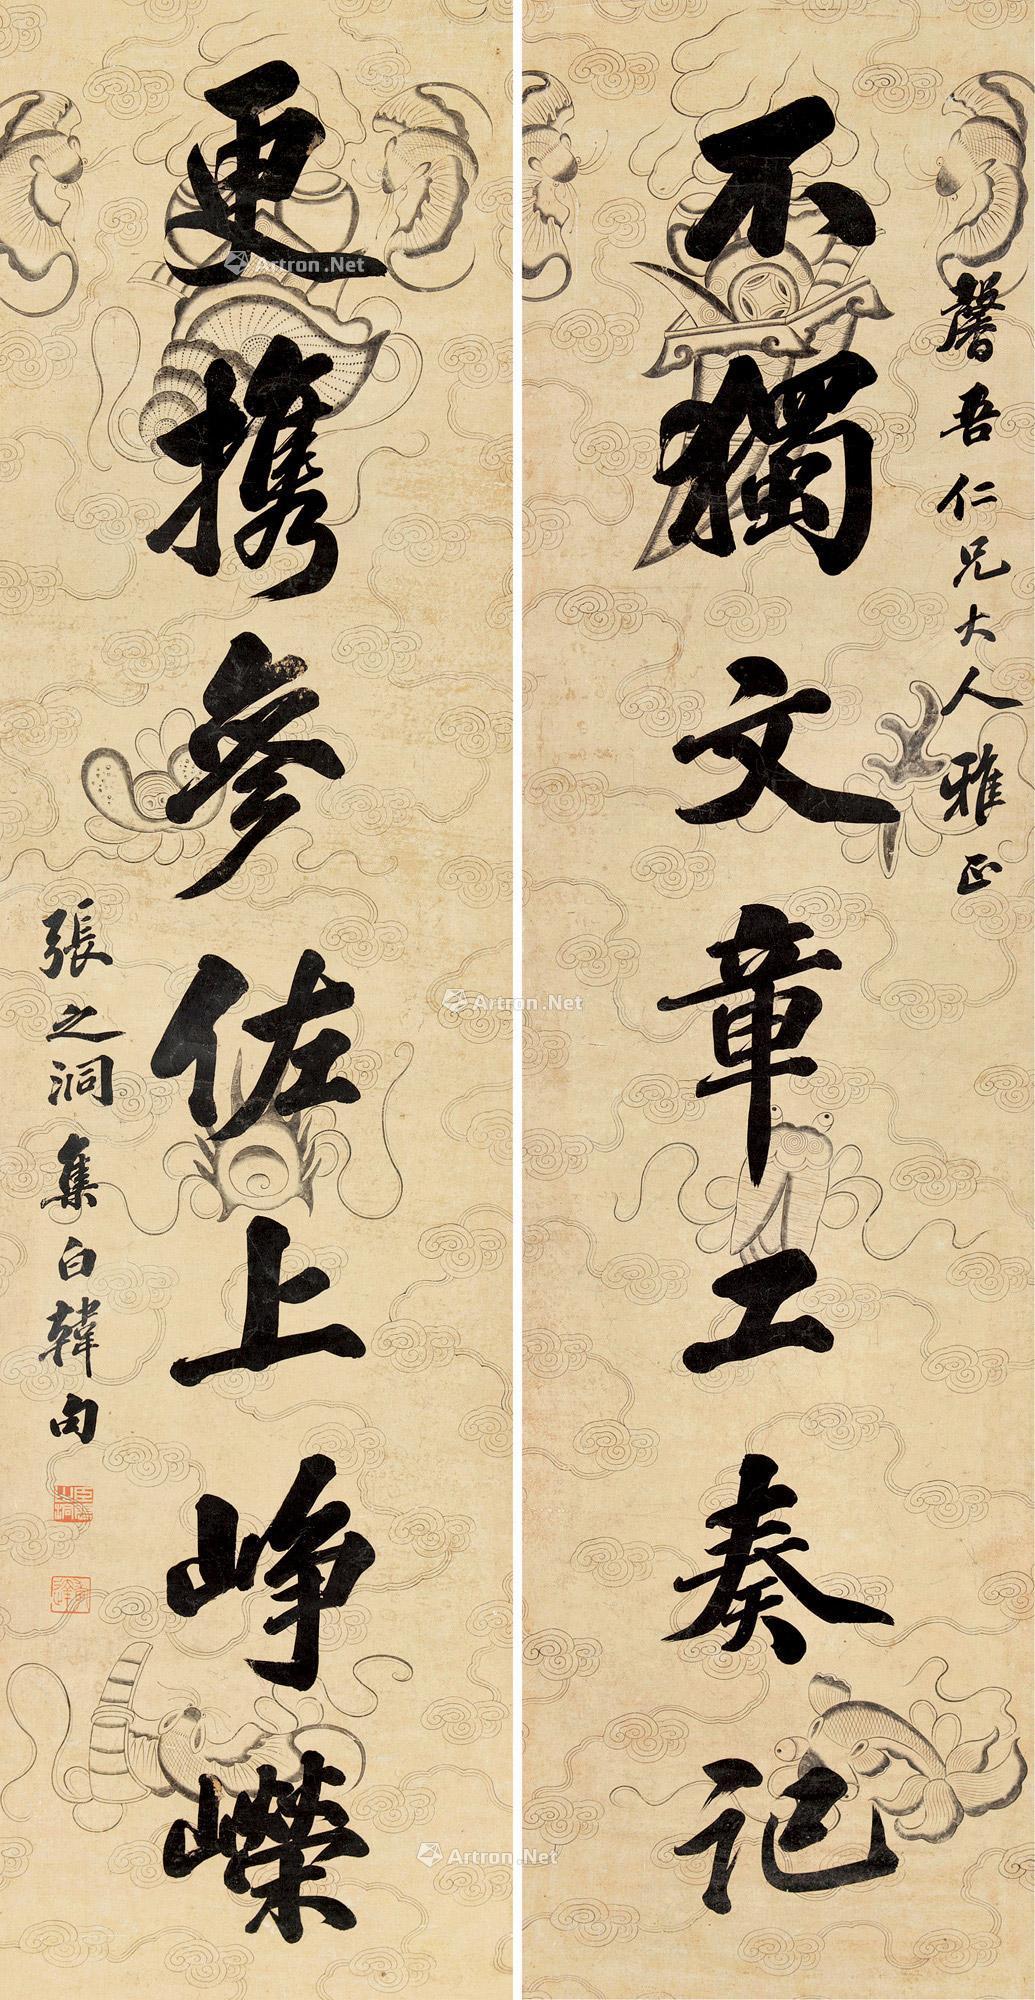 馨吾仁兄大人雅正
不獨文章工奏記
更携參佐上崢嶸
張之洞集白韓句
Artron.Net
Artron.Net
Artron.Net